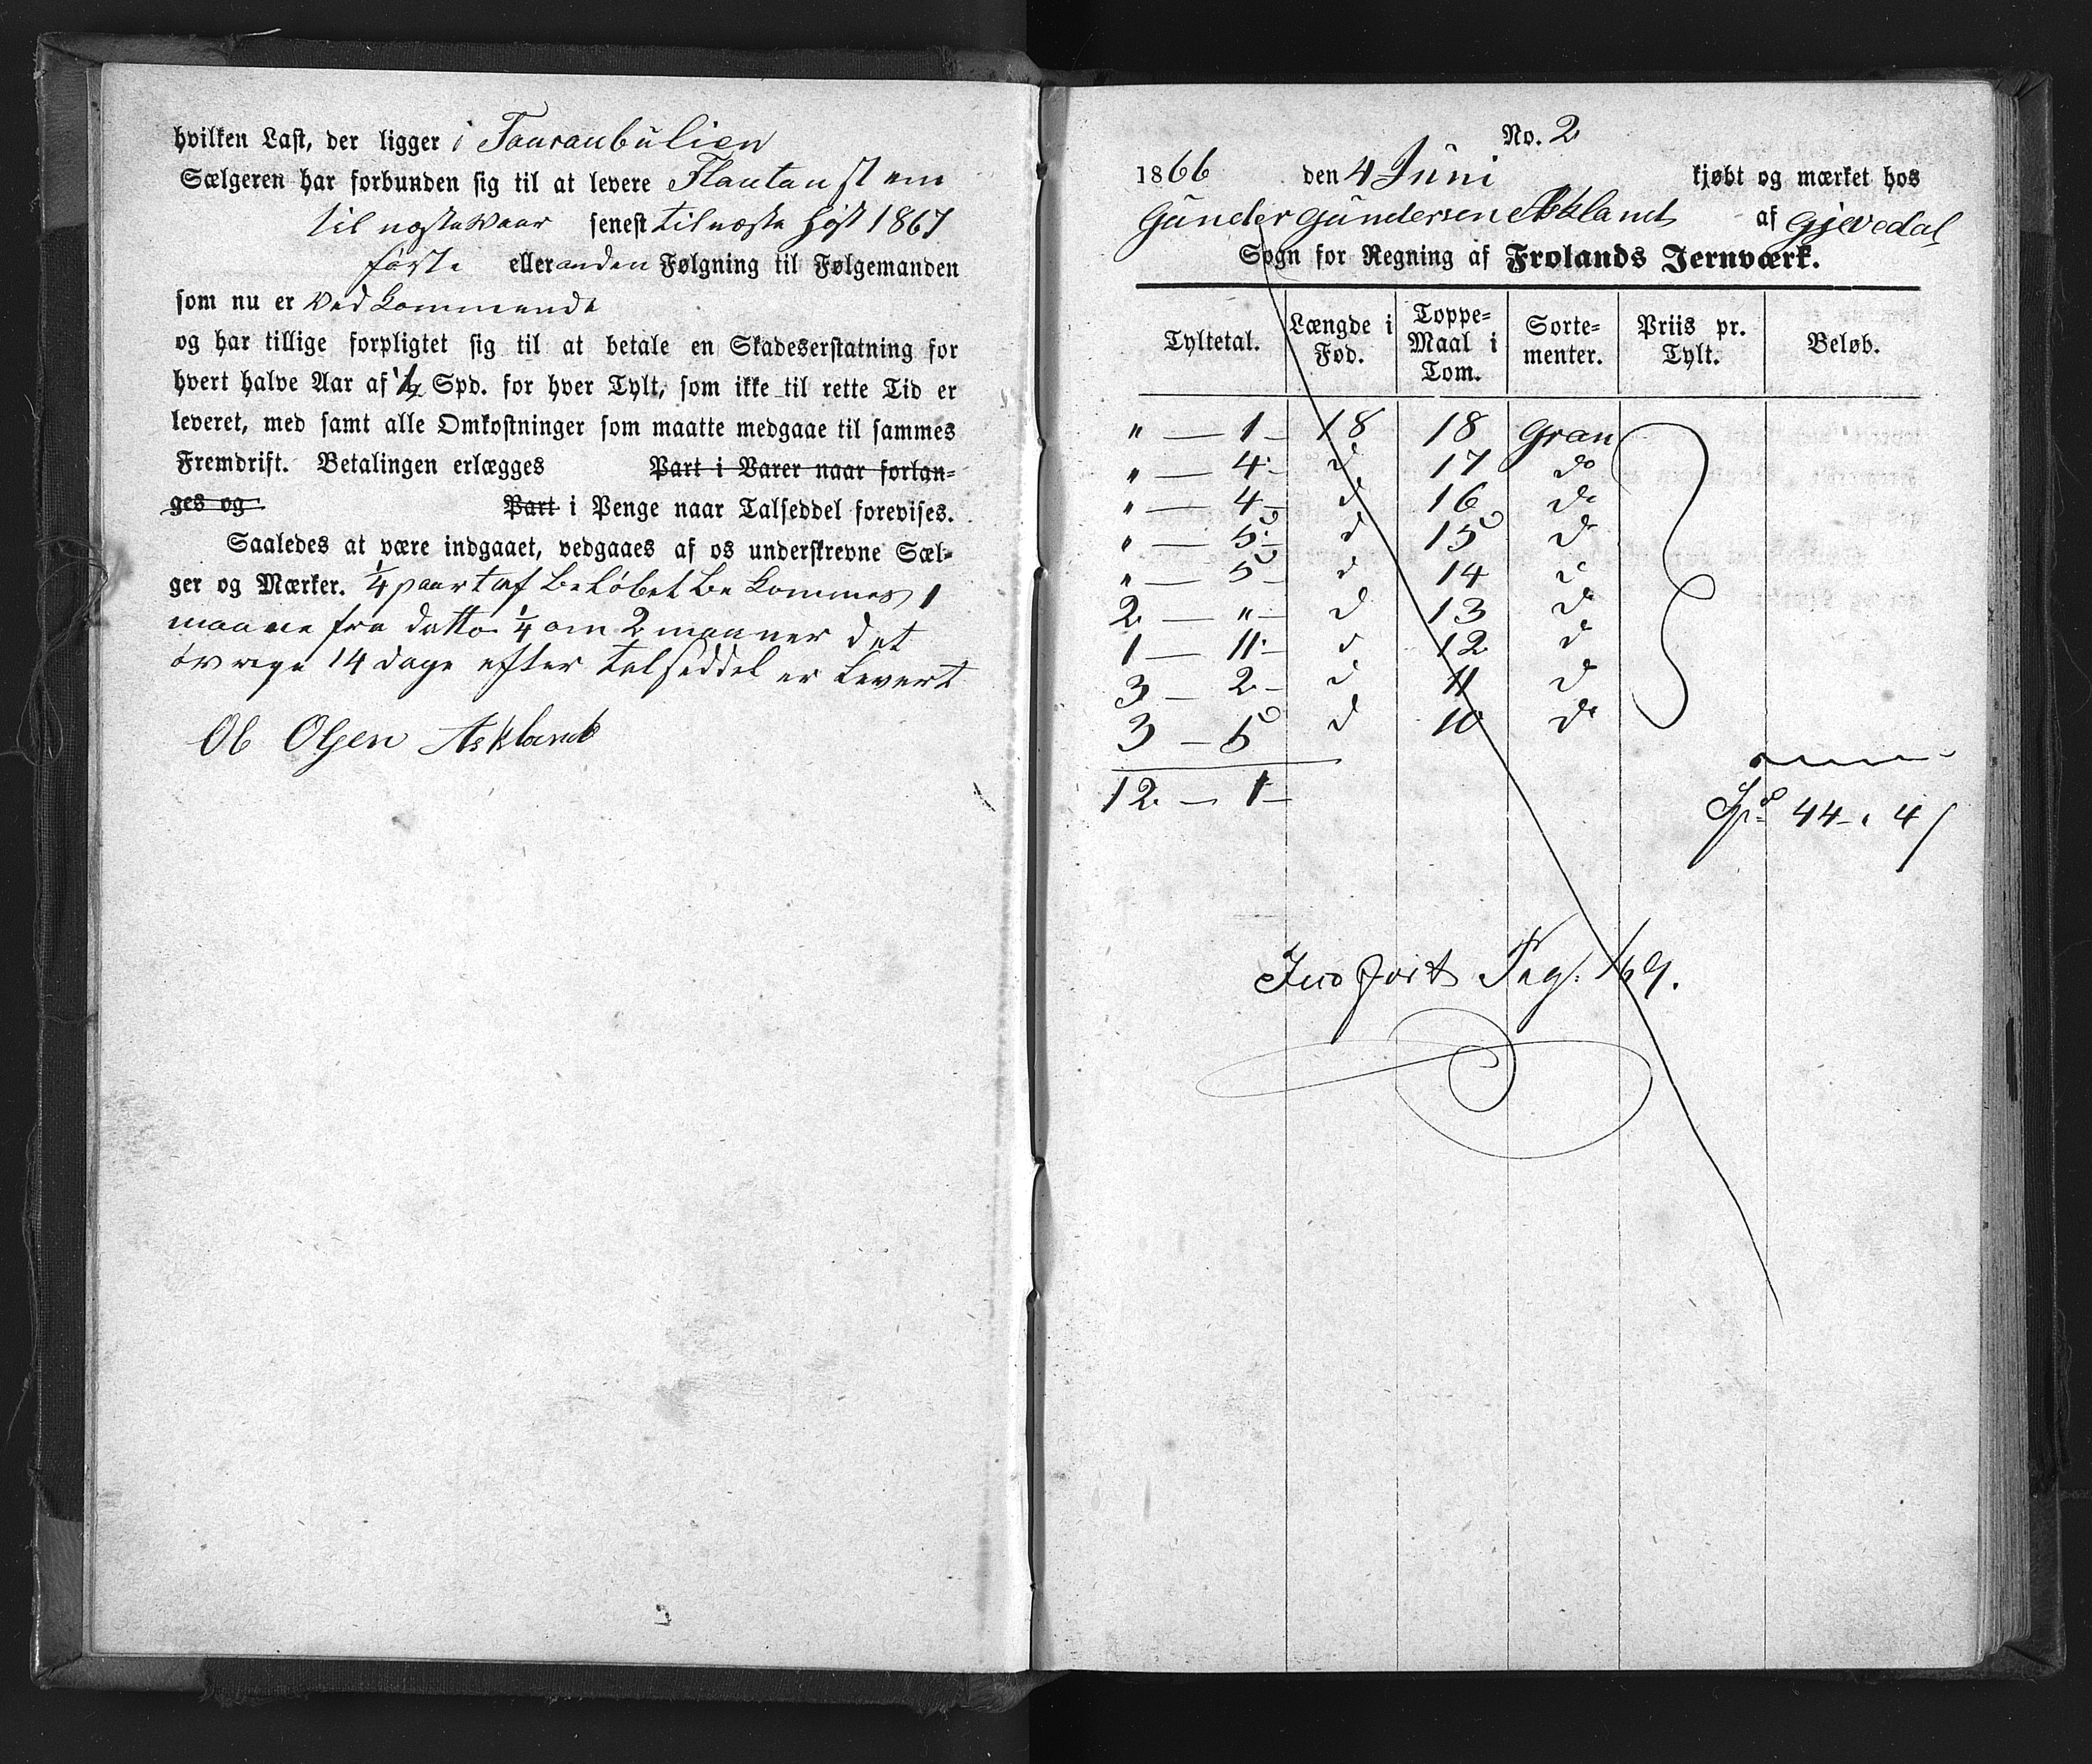 hvilken Last, der ligger i Tauraubulien
Sælgeren har forbunden sig til at levere Flautanstem
til næste Vaar senest til næste Høst 1867
förste eller anden Følgning til Følgemanden
som nu er Vedkommende
og har tillige forpligtet sig til at betale en Skadeserstatning for
hvert halve Aar af ½ Spd. for hver Tylt, som ikke til rette Tid er
leveret, med samt alle Omkostninger som maatte medgaae til sammes
Fremdrift. Betalingen erlægges Part i Varer naar forlan-
ges og Part i Penge naar Talseddel forevises.
Saaledes at være indgaaet, vedgaaes af os underskrevne Sæl-
ger og Mærker. ¼ paart af Belöbet bekommes 1
maane fra datto ¼ om 2 maaner det
övrige 14 dage efter talseddel er Levert
Ol Olsen Askland
No. 2
1866 den 4 Juni kjøbt og mærket hos
Gunder Gundersen Askland af Gjevedal
Sogn for Regning af Frolands Jernværk.
Tyltetal. Længde i Fod. Toppe-Maal i Tom. Sorte-menter. Priis pr. Tylt. Beløb.
" — 1 — 18 18 Gran
" — 4 — d 17 do
" — 4 — d 16 do
" — 5 — d 15 d
" — 5 — d 14 d
2 — " — d 13 d
1 — 11 — d 12 d
3 — 2 — d 11 d
3 — 5 d 10 do
12 — 1 —
Spd 44 - " 4/
Indført Pag: 169.